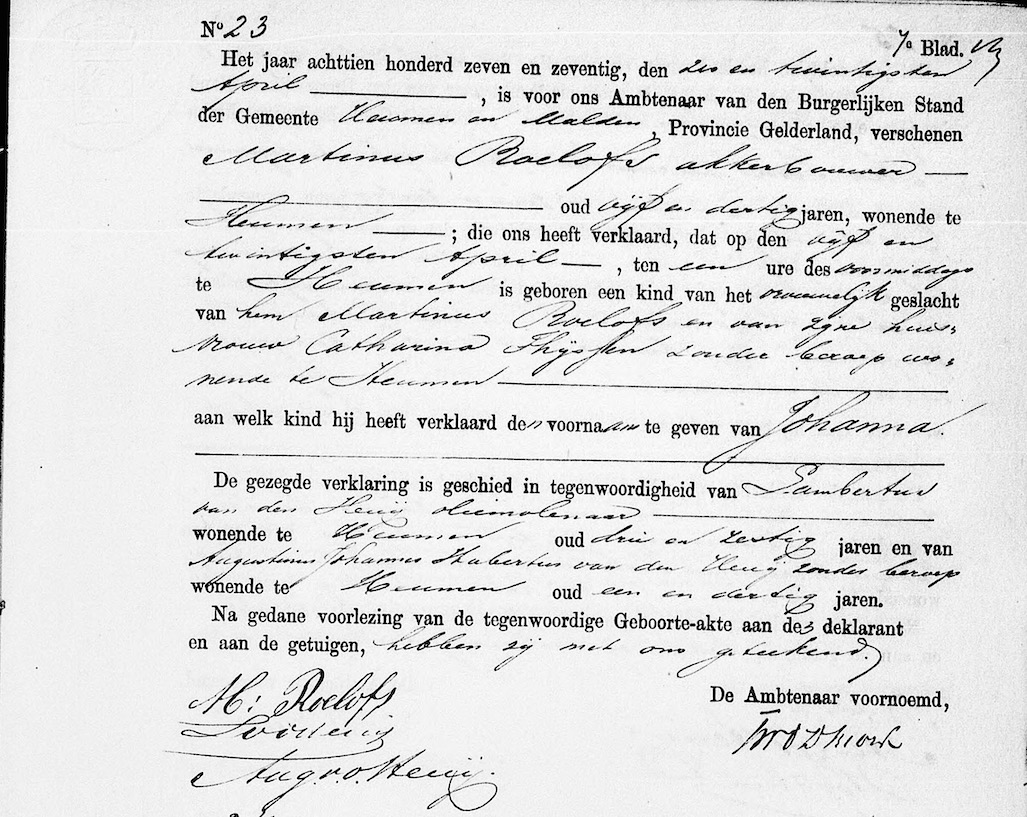 No 23
7e Blad.
Het jaar achttien honderd zeven en zeventig, den zes en twintigsten
April , is voor ons Ambtenaar van den Burgerlijken Stand
der Gemeente Heumen en Malden, Provincie Gelderland, verschenen
Martinus Roelofs akkerbouwer
oud vijf en dertig jaren, wonende te
Heumen ; die ons heeft verklaard, dat op den vijf en
twintigsten April , ten een ure des voormiddags
te Heumen is geboren een kind van het vrouwelijk geslacht
van hem Martinus Roelofs en van zijne huis-
vrouw Catharina Thijssen zonder beroep wo-
nende te Heumen
aan welk kind hij heeft verklaard den voornaam te geven van Johanna.
De gezegde verklaring is geschied in tegenwoordigheid van Lambertus
van den Heuij oliemolenaar
wonende te Heumen oud drie en zestig jaren en van
Augustinus Johannes Hubertus van den Heuij zonder beroep
wonende te Heumen oud een en dertig jaren.
Na gedane voorlezing van de tegenwoordige Geboorte-akte aan den deklarant
en aan de getuigen, hebben zij met ons geteekend.
M: Roelofs
De Ambtenaar voornoemd,
Aug v d Heuij.